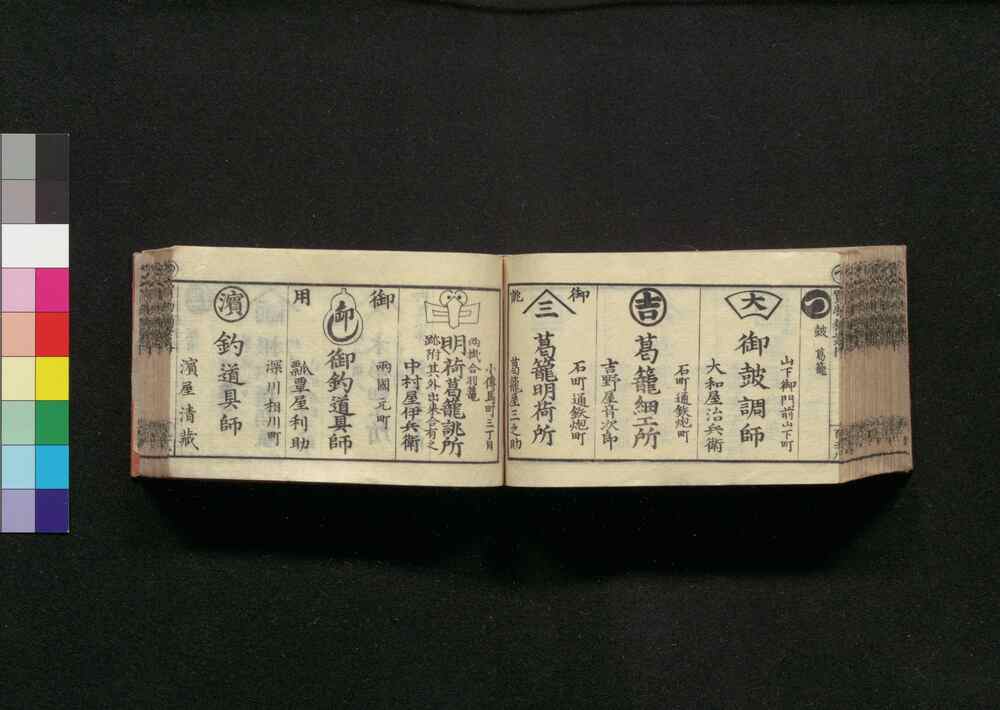 つ
鼓 葛籠
山下御門前山下町
大
御鼓調師
大和屋治兵衛
石町通鉄炮町
吉
葛籠細工所
吉野屋音次郎
石町通鉄炮町
御
三
葛籠明荷所
誂
葛籠屋三之助
小傳馬町三丁目
両掛合羽籠
明荷葛籠誂所
跡附其外出来合有之
中村屋伊兵衛
御
両國元町
御
御釣道具師
用
瓢豊屋利助
深川相川町
濱
釣道具師
濱屋清藏